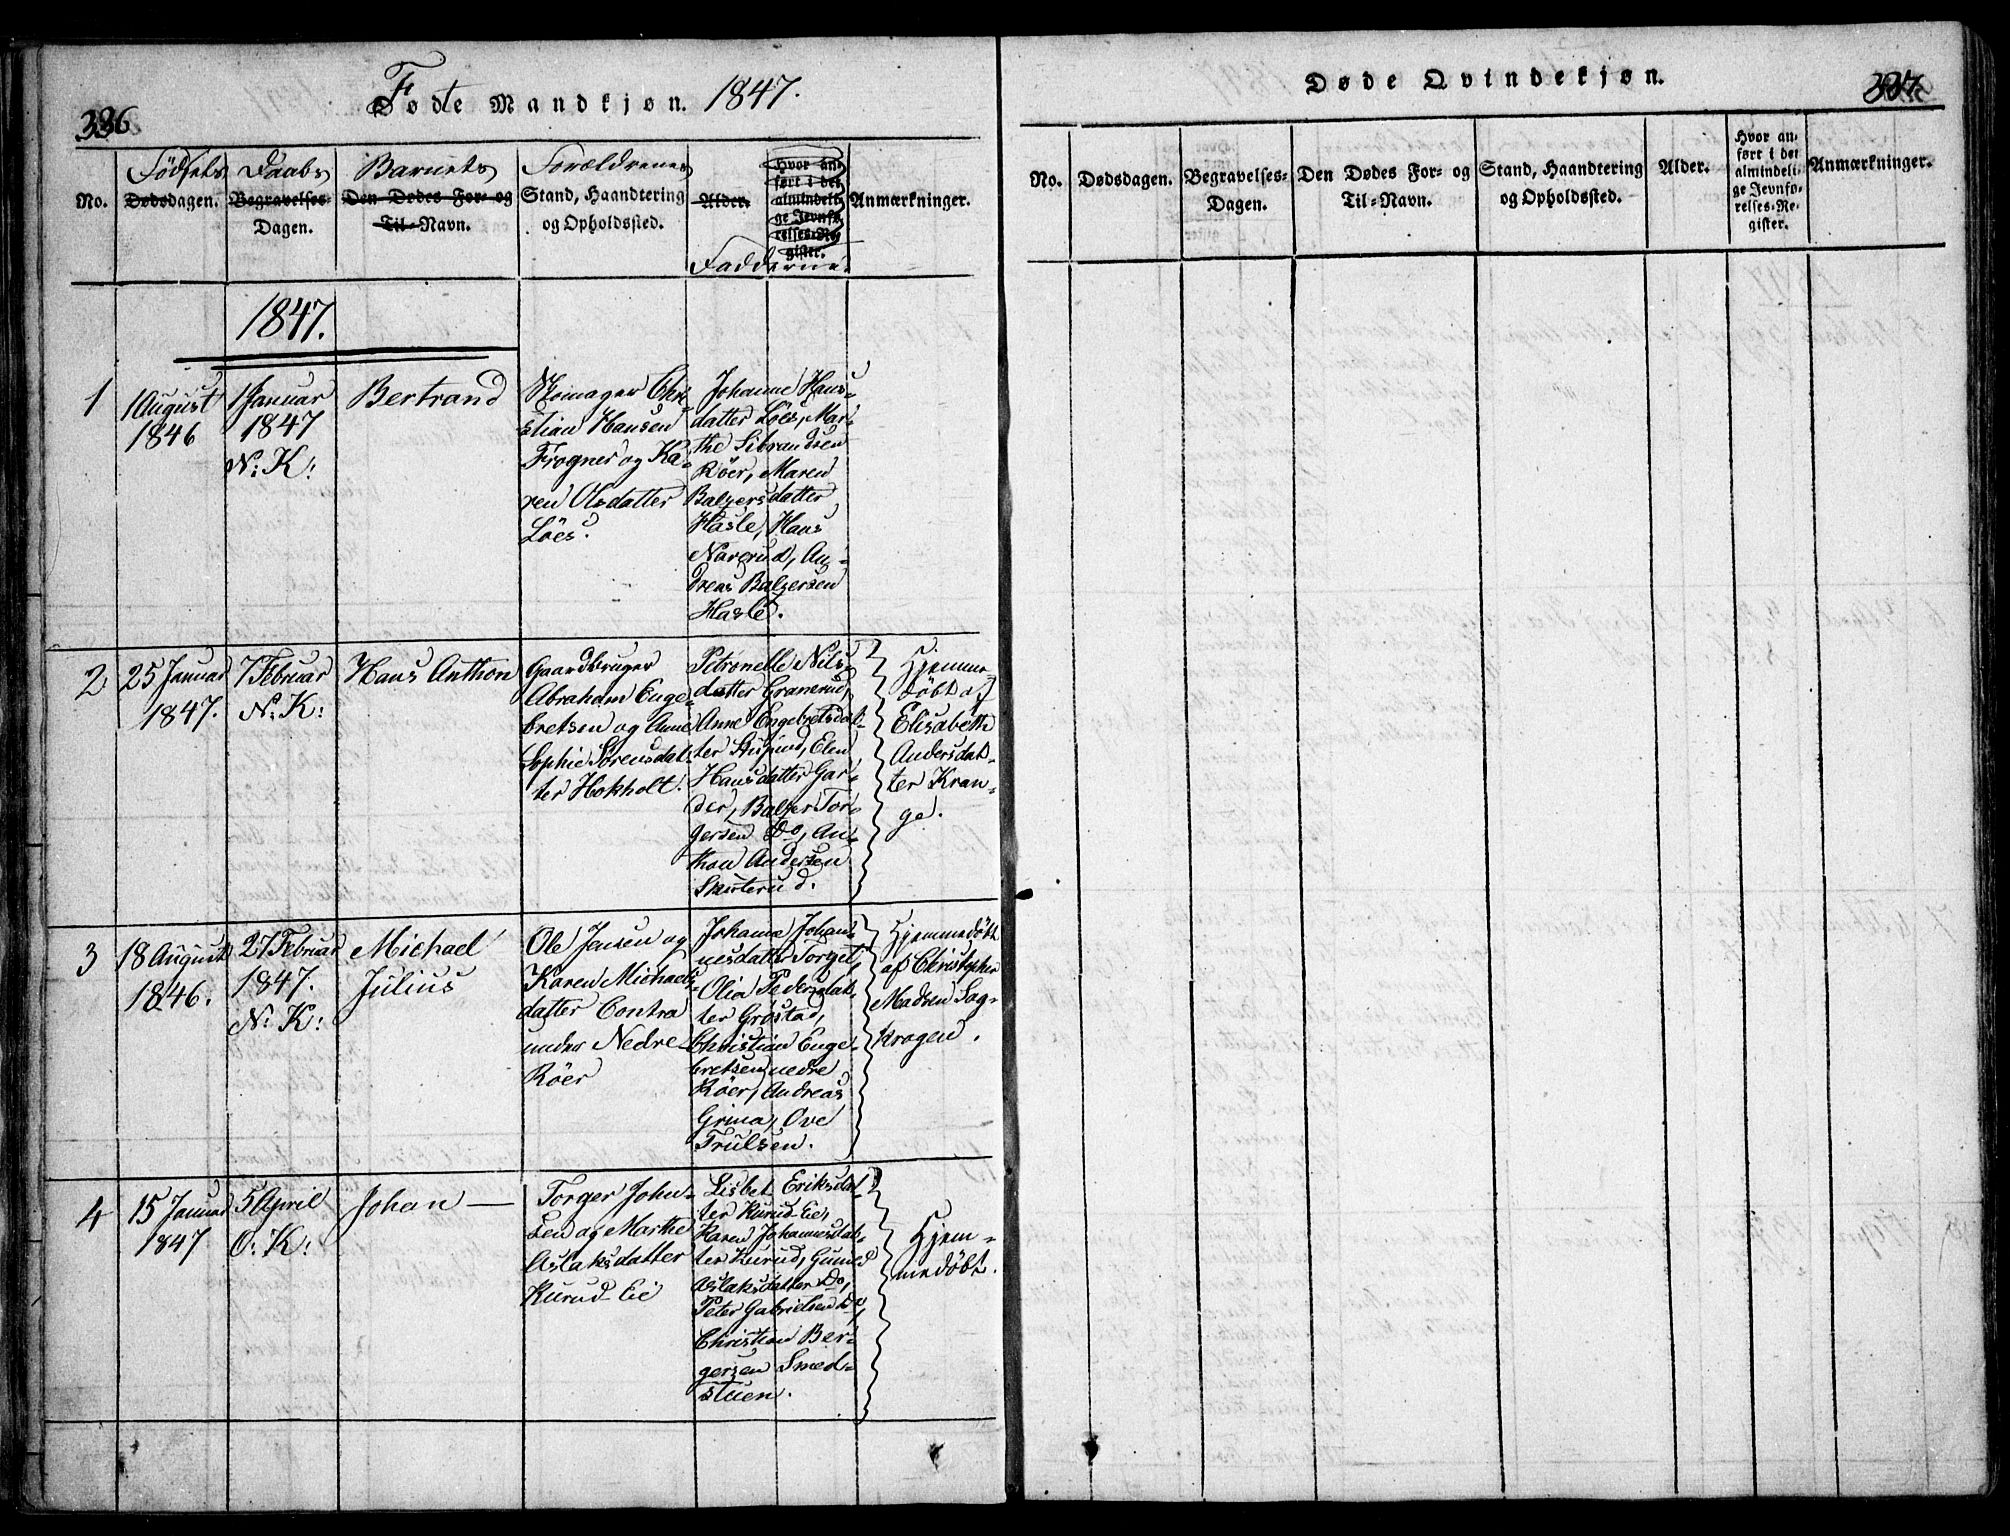 336
Fødte Mandkjøn. 1847.
No.
Fødsels
Dødsdagen.
Daabs
Begravelses-
Dagen.
Barnets
Den Dødes For- og
Til-Navn.
Forældrenes
Stand, Haandtering
og Opholdssted.
Alder.
Hvor an-
ført i det
almindeli-
ge Jevnfø-
relses-Re-
gister.
Fadderne.
Anmærkninger.
1847.
1
1 August
1846
1 Januar
1847
N: K:
Bertrand
Skomager Chri-
stian Hansen
Frogner og Ka-
ren Olsdatter
Löes.
Johanne Hans-
datter Löes, Mar-
the Sibrandsen
Röer, Maren
Balzersdatter
Hasle, Hans
Narerud, An-
dreas Balzersen
Hasle.
2
25 Januar
1847.
7 Februar
N: K:
Hans Anthon
Gaardbruger
Abraham Enge-
bretsen og Anne
Sophie Sørensdat-
ter Hokholt.
Petronelle Nils-
datter Granerud,
Anne Engebretsdat-
ter Elen
Hansdatter Gar-
der, Balzer Tor-
gersen Do, An-
thon Andersen
Skuterud.
Hjemme-
døbt af
Elisabeth
Andersdat-
ter Kran-
ge.
3
18 August
1846.
27 Februar
1847.
N: K:
Michael
Julius
Ole Jensen og
Karen Michaels-
datter Contra
under Nedre
Röer
Johanne Johan-
nesdatter Torget,
Olia Pedersdat-
ter Grøstad,
Christian Enge-
bretsen nedre
Röer, Andreas
Grina, Ove
Trulsen.
Hjemmedøbt
af Christopher
Madsen Sag-
krogen.
4
15 Januar
1847
5 April
O: K:
Johan
Torger John-
sen og Marthe
Aslaksdatter
Kurud-Eie
Lisbet Eriksdat-
ter Kurud-Eie,
Karen Johannesdat-
ter Kurud, Gunild
Aslaksdatter Do,
Peter Gabrielsen Do,
Christian Ber-
gersen Smed-
stuen.
Hjem-
medøbt.
Døde Qvindekjøn.
337
No.
Dødsdagen.
Begravelses-
Dagen.
Den Dødes For- og
Til-Navn.
Stand, Haandtering
og Opholdssted.
Alder.
Hvor an-
ført i det
almindeli-
ge Jevnfø-
relses-Re-
gister.
Anmærkninger.